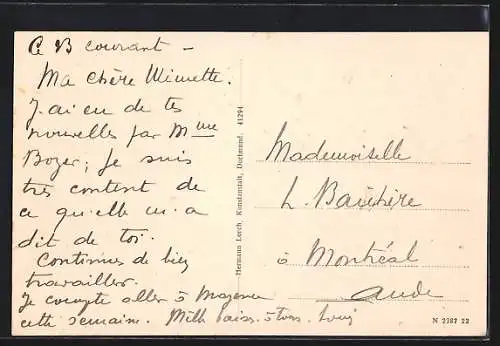 Ce 13 courant -
Ma chère Mimette.
J'ai eu de tes
nouvelles par Mme
Boyer; je suis
très content de
ce qu'elle m'a
dit de toi.
Continues de bien
travailler.
Je compte aller à Mayence
cette semaine. Mille baisers à tous. Louis
Hermann Lorch, Kunstanstalt, Dortmund. 41294
Mademoiselle
L.
à Montréal
Aude
N 2787 22